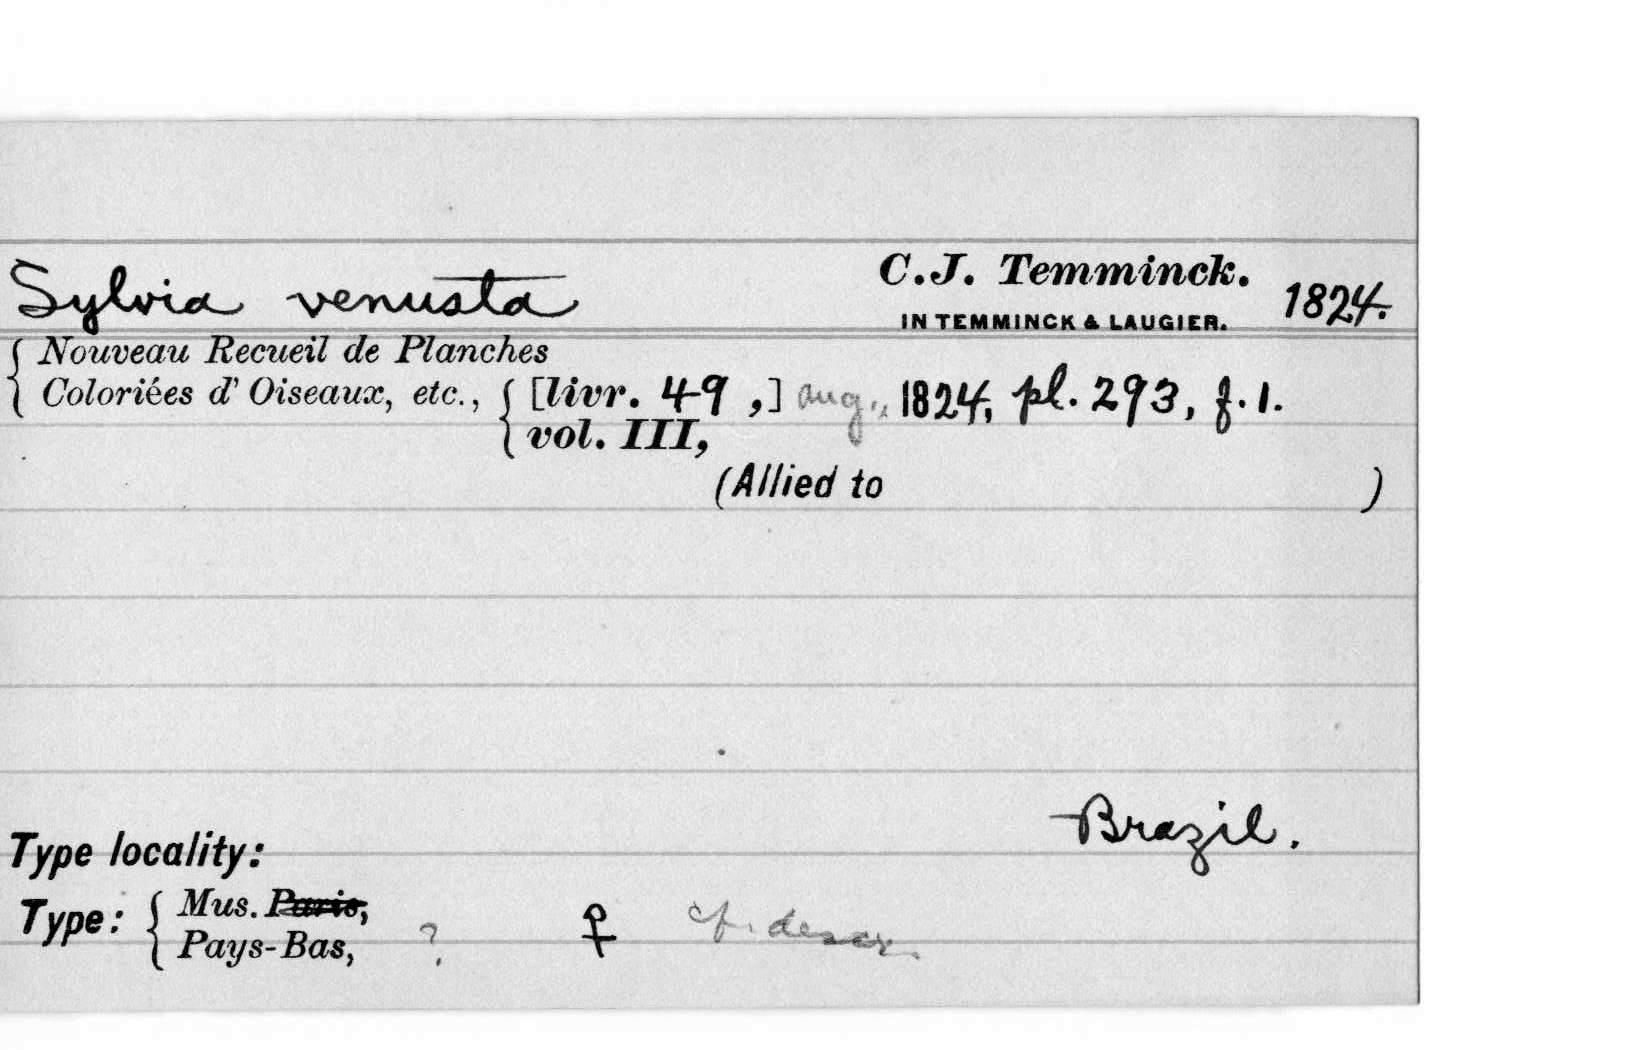 Sylvia venusta C.J. Temminck. 1824.
IN TEMMINCK & LAUGIER.
Nouveau Recueil de Planches
Coloriées d' Oiseaux, etc., [livr. 49 ,] aug., 1824, pl. 293, f. 1.
vol. III,
(Allied to )
Brazil.
Type locality:
Type: Mus. Paris,
Pays-Bas, ? ♀ cf. descr.